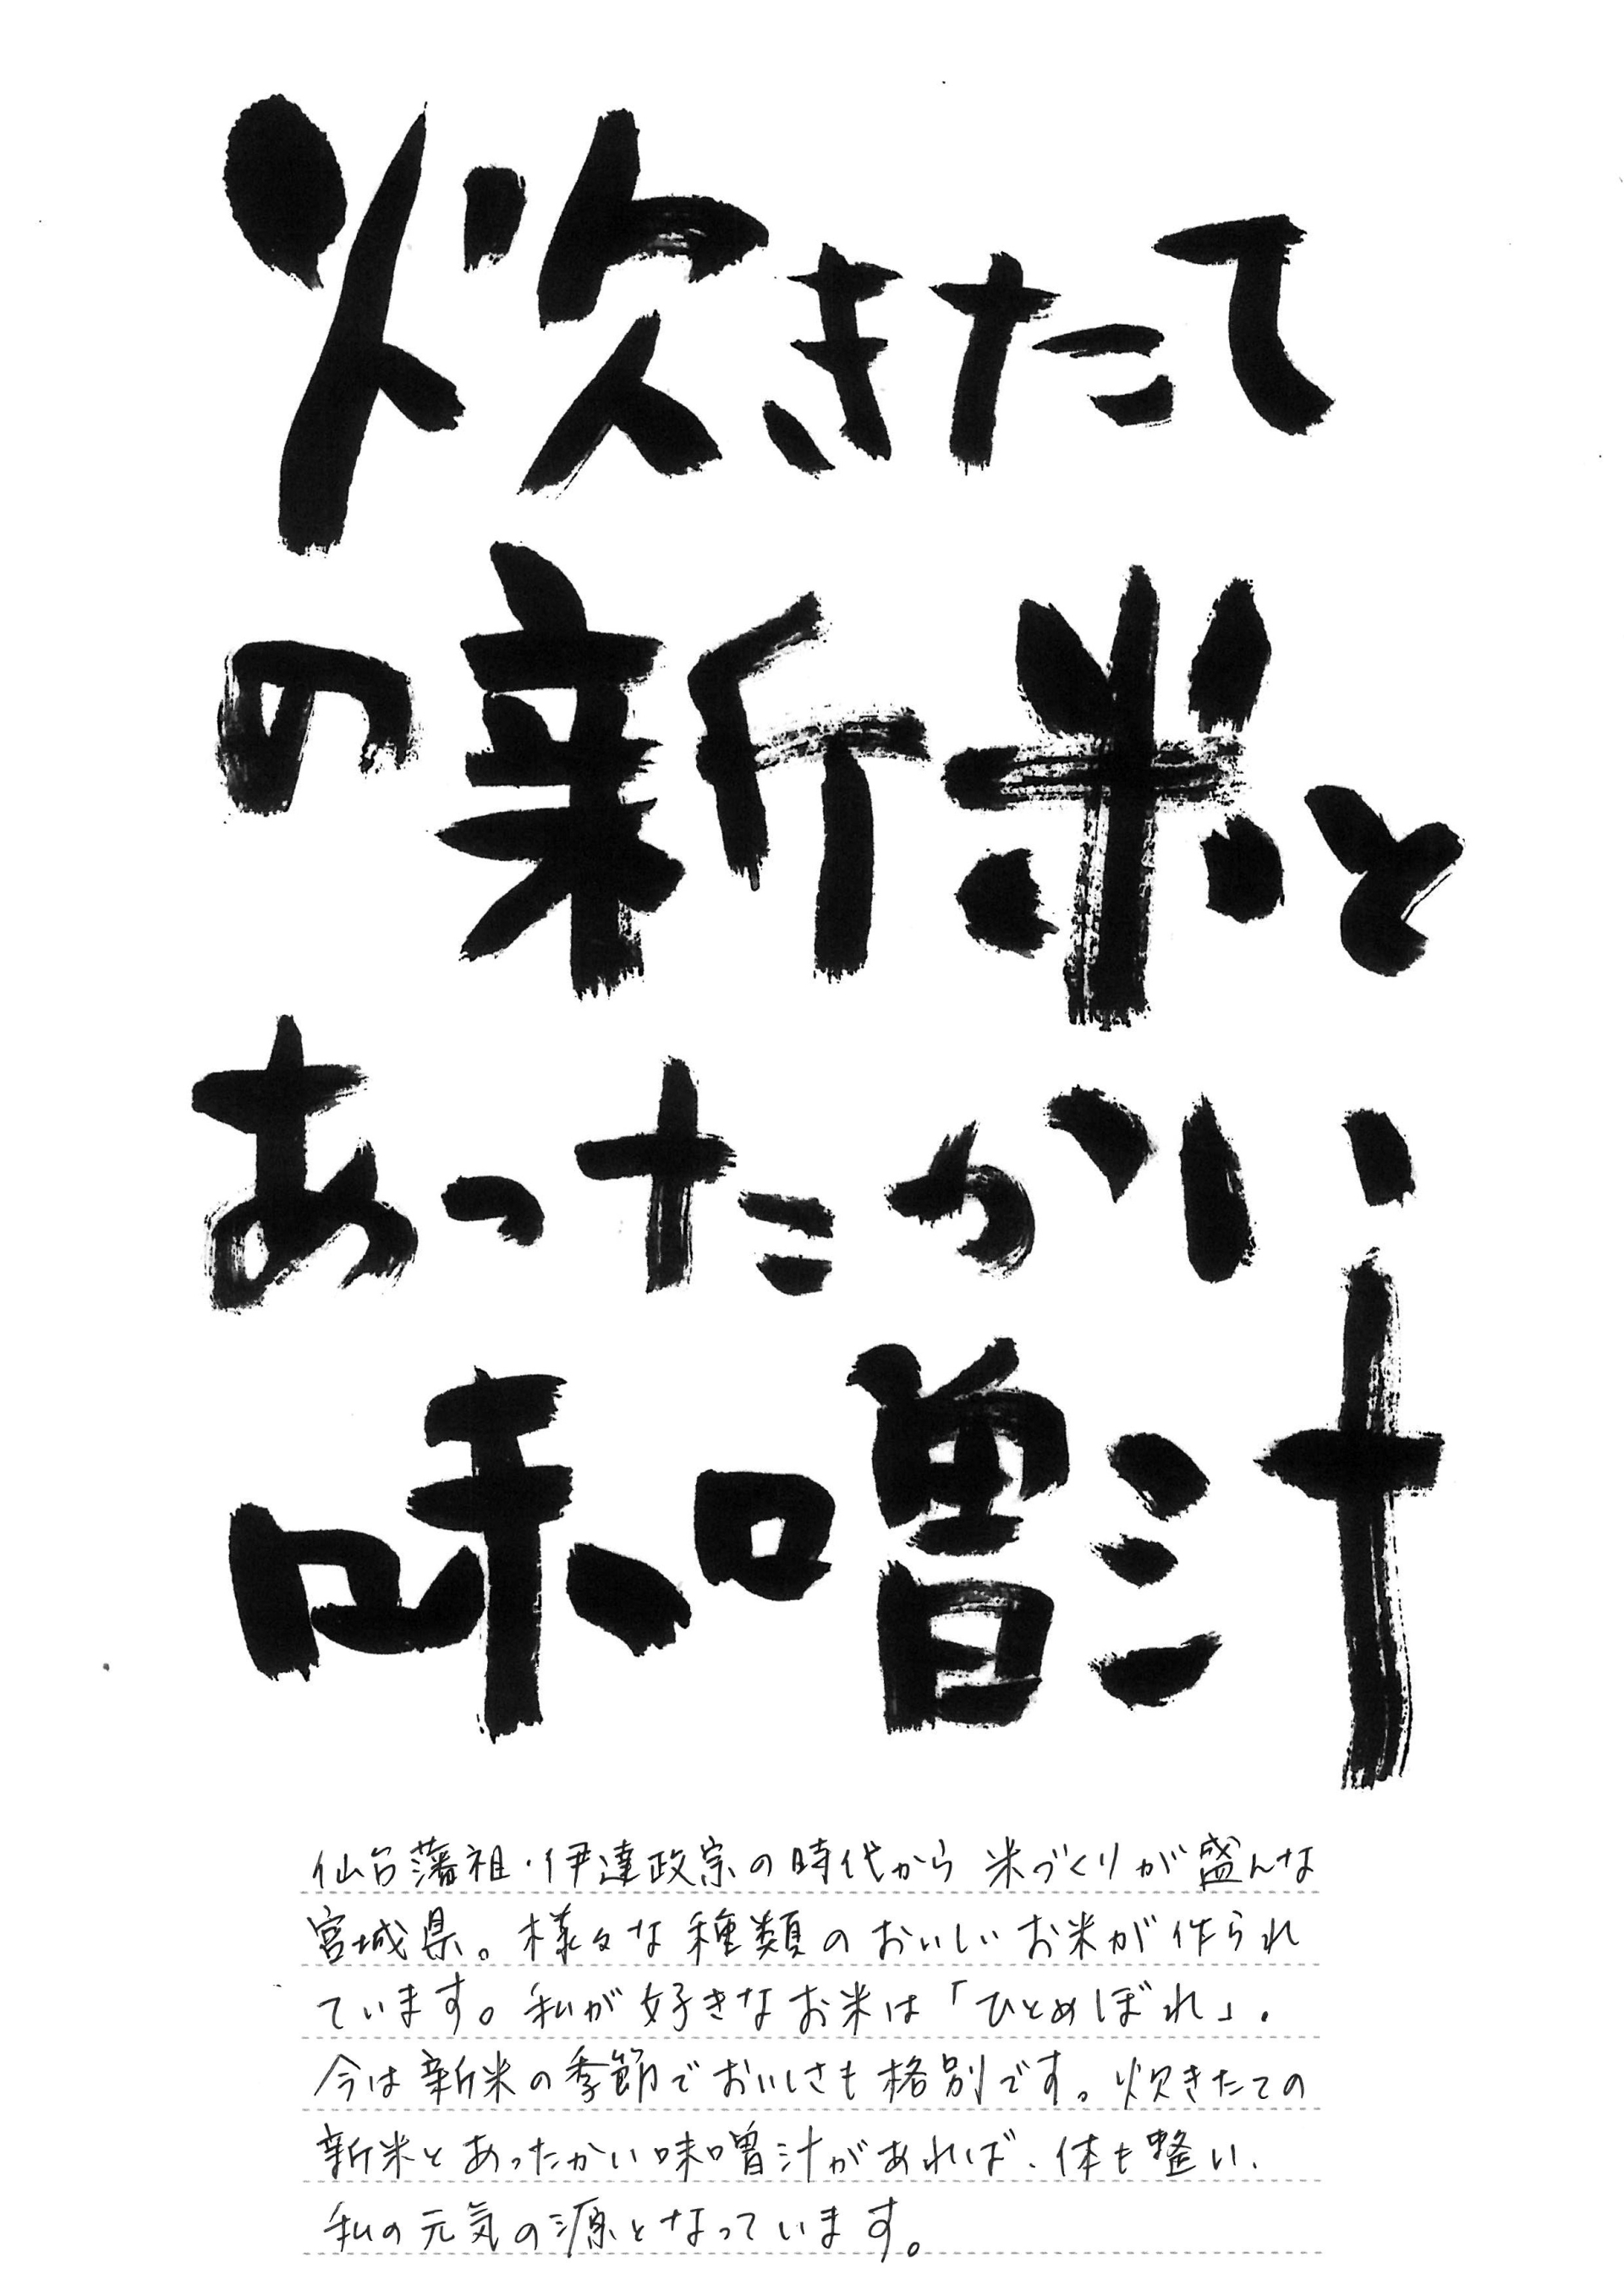 炊きたて
の新米と
あったかい
味噌汁
仙台藩祖・伊達政宗の時代から 米づくりが盛んな
宮城県。様々な種類のおいしいお米が作られ
ています。私が好きなお米は「ひとめぼれ」。
今は新米の季節でおいしさも格別です。炊きたての
新米とあったかい味噌汁があれば、体も整い、
私の元気の源となっています。